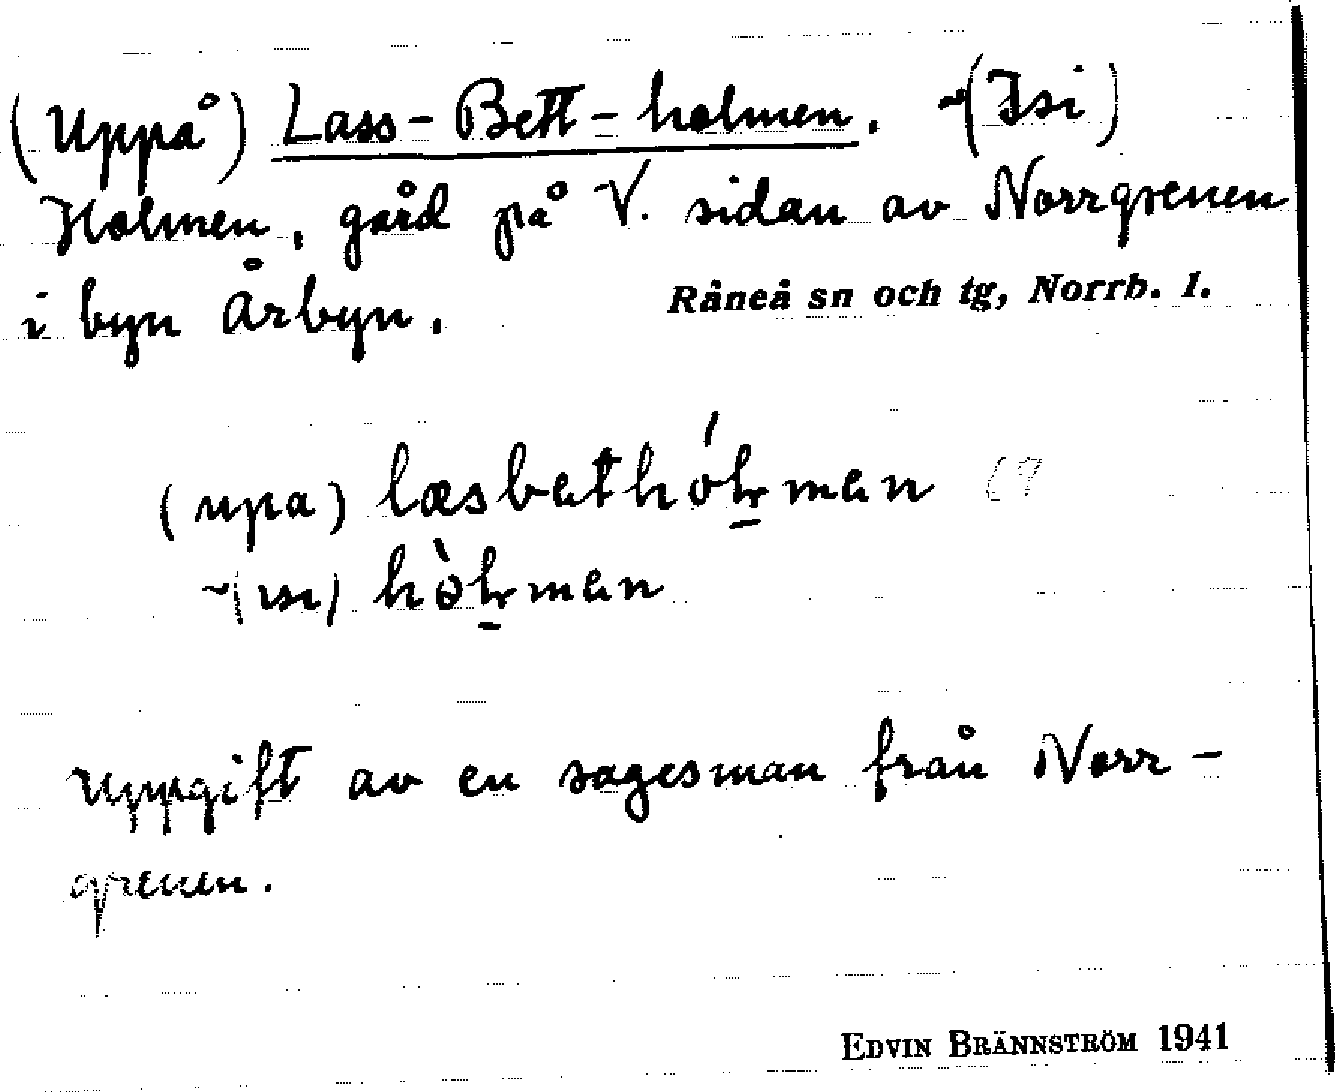 (Uppå) Lass-Bett-holmen. ~(Isi)
Holmen, gård på V. sidan av Norrgrenen
i byn Årbyn. Råneå sn och tg, Norrb. l.
(upa) læsbethólmen
~(ısı) hòlmen
Uppgift av en sagesman från Norr-
grenen.
EDVIN BRÄNNSTRÖM 1941